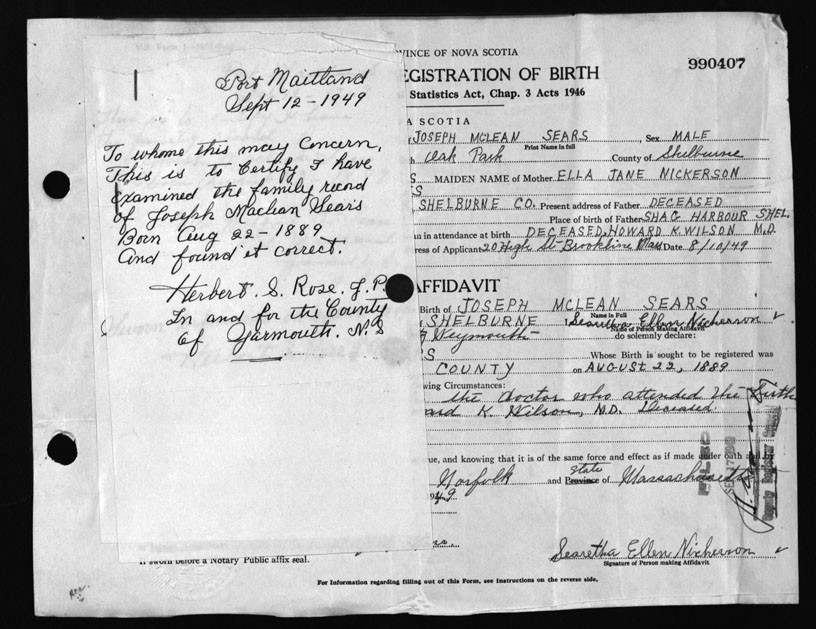 Port Maitland
Sept 12-1949
To whome this may Concern,
This is to Certify I have
examined the family record
of Joseph Maclean Sears
Born Aug 22-1889
And found it correct.
Herbert. S. Rose. J. P.
In and for the County
Of Yarmouth. N. S
VINCE OF NOVA SCOTIA
990407
EGISTRATION OF BIRTH
Statistics Act, Chap. 3 Acts 1946
A SCOTIA
JOSEPH MCLEAN SEARS Sex MALE
Print Name in full
Oak Park County of Shelburne
S MAIDEN NAME of Mother ELLA JANE NICKERSON
SHELBURNE CO. Present address of Father DECEASED
Place of birth of Father SHAG HARBOUR SHEL.
an in attendance at birth DECEASED, HOWARD K. WILSON M.D.
ress of Applicant 20 High St Brookline Mass Date 8/10/49
AFFIDAVIT
Birth of JOSEPH MCLEAN SEARS
Name in Full
SHELBURNE Searetha Ellen Nickerson
Name of Person Making Affidavit
Weymouth do solemnly declare:
S Whose Birth is sought to be registered was
COUNTY on AUGUST 22, 1889
wing Circumstances:
the doctor who attended the birth
ard K. Wilson, M.D. Deceased.
ue, and knowing that it is of the same force and effect as if made under oath and by
Norfolk and Province of State Massachusetts
1949
FILED
Searetha Ellen Nickerson
Signature of Person making Affidavit
If sworn before a Notary Public affix seal.
For Information regarding filling out of this Form, see instructions on the reverse side.